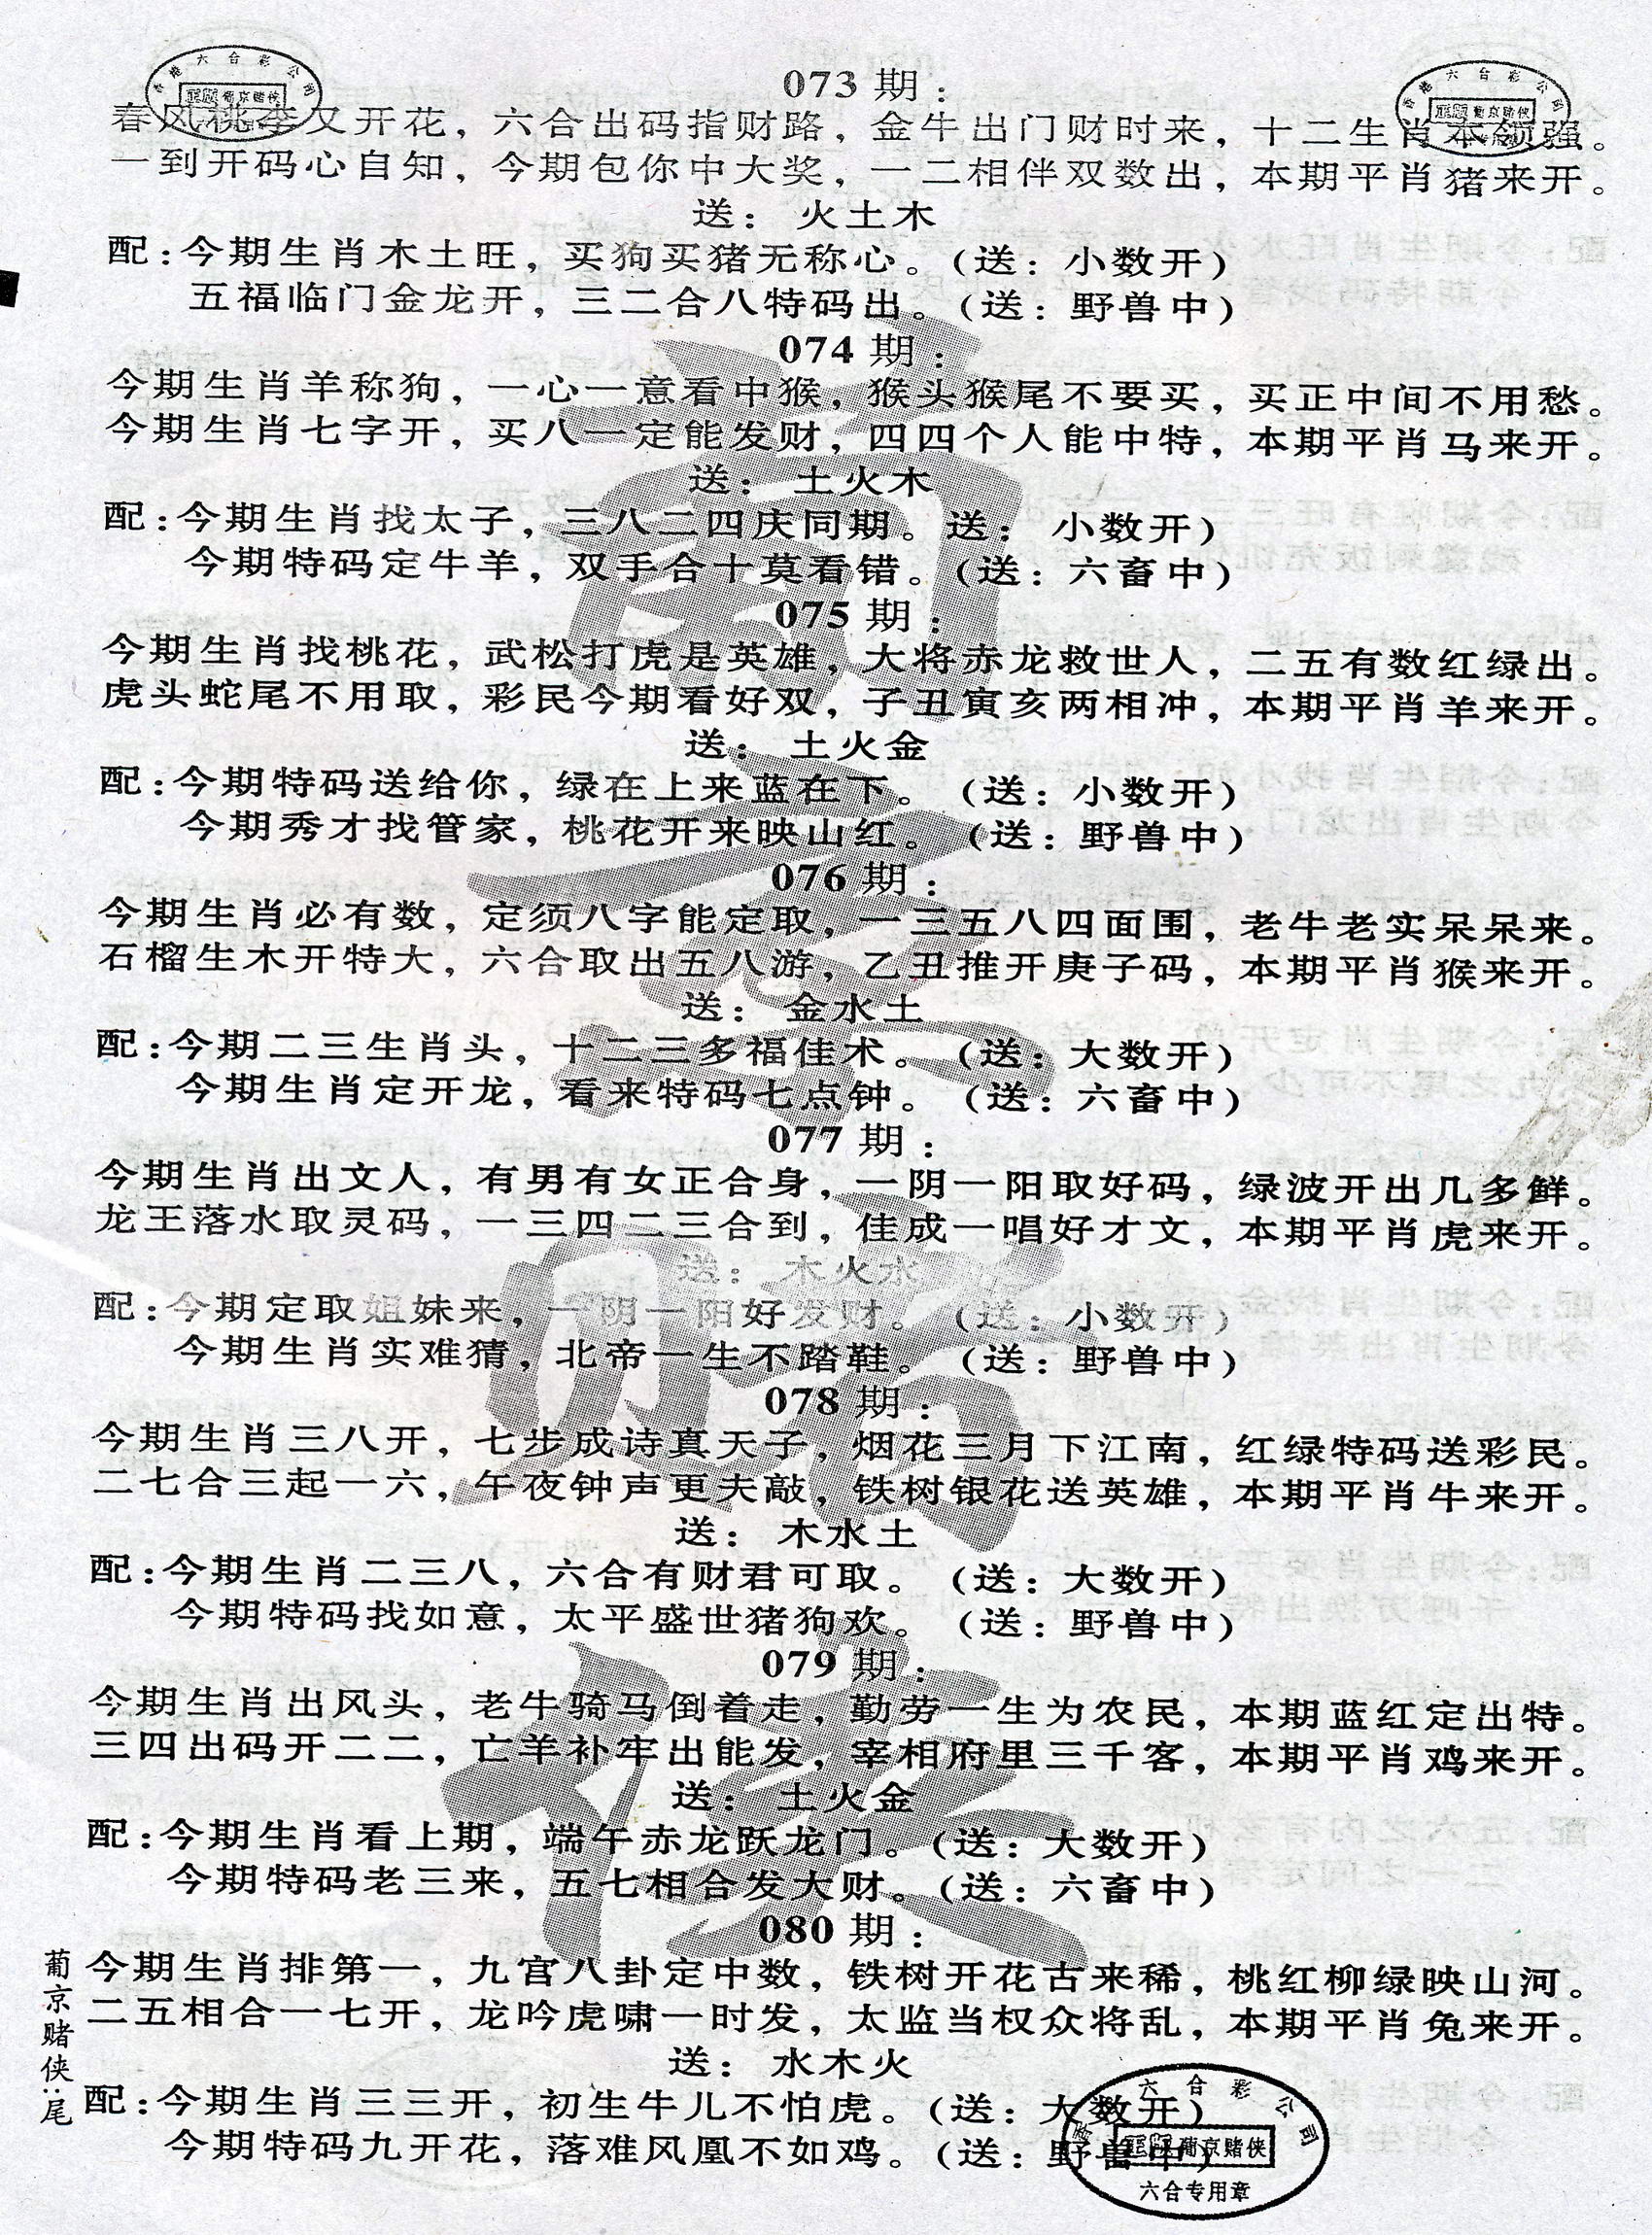 香港六合彩公司
正版 葡京赌侠
六合彩公司
正版 葡京赌侠
073 期：
春风桃李又开花，六合出码指财路，金牛出门财时来，十二生肖本领强。
一到开码心自知，今期包你中大奖，一二相伴双数出，本期平肖猪来开。
送： 火土木
配：今期生肖木土旺，买狗买猪无称心。（送：小数开）
五福临门金龙开，三二合八特码出。（送：野兽中）
074 期：
今期生肖羊称狗，一心一意看中猴，猴头猴尾不要买，买正中间不用愁。
今期生肖七字开，买八一定能发财，四四个人能中特，本期平肖马来开。
送： 土火木
配：今期生肖找太子，三八二四庆同期。送： 小数开）
今期特码定牛羊，双手合十莫看错。（送：六畜中）
075 期：
今期生肖找桃花，武松打虎是英雄，大将赤龙救世人，二五有数红绿出。
虎头蛇尾不用取，彩民今期看好双，子丑寅亥两相冲，本期平肖羊来开。
送： 土火金
配：今期特码送给你，绿在上来蓝在下。（送：小数开）
今期秀才找管家，桃花开来映山红。（送：野兽中）
076 期：
今期生肖必有数，定须八字能定取，一三五八四面围，老牛老实呆呆来。
石榴生木开特大，六合取出五八游，乙丑推开庚子码，本期平肖猴来开。
送： 金水土
配：今期二三生肖头，十二三多福佳术。（送：大数开）
今期生肖定开龙，看来特码七点钟。（送：六畜中）
077 期：
今期生肖出文人，有男有女正合身，一阴一阳取好码，绿波开出几多鲜。
龙王落水取灵码，一三四二三合到，佳成一唱好才文，本期平肖虎来开。
送： 木火水
配：今期定取姐妹来，一阴一阳好发财。（送：小数开）
今期生肖实难猜，北帝一生不踏鞋。（送：野兽中）
078 期：
今期生肖三八开，七步成诗真天子，烟花三月下江南，红绿特码送彩民。
二七合三起一六，午夜钟声更夫敲，铁树银花送英雄，本期平肖牛来开。
送： 木水土
配：今期生肖二三八，六合有财君可取。（送：大数开）
今期特码找如意，太平盛世猪狗欢。（送：野兽中）
079 期：
今期生肖出风头，老牛骑马倒着走，勤劳一生为农民，本期蓝红定出特。
三四出码开二二，亡羊补牢出能发，宰相府里三千客，本期平肖鸡来开。
送： 土火金
配：今期生肖看上期，端午赤龙跃龙门。（送：大数开）
今期特码老三来，五七相合发大财。（送：六畜中）
080 期：
今期生肖排第一，九宫八卦定中数，铁树开花古来稀，桃红柳绿映山河。
二五相合一七开，龙吟虎啸一时发，太监当权众将乱，本期平肖兔来开。
送： 水木火
配：今期生肖三三开，初生牛儿不怕虎。（送：大数开）
今期特码九开花，落难风凰不如鸡。（送：野兽中）
葡京赌侠：尾
葡京赌侠
香港六合彩公司
正版 葡京赌侠
六合专用章